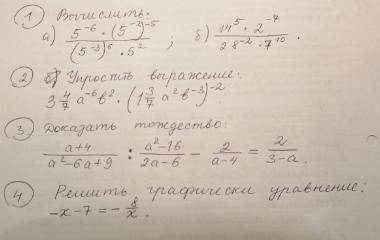 ① Вычислить:
а) (5⁻⁶ · (5⁻²)⁻⁵) / ((5⁻³)⁶ · 5²) ; б) (14⁵ · 2⁻⁷) / (28⁻² · 7¹⁰) .
② Упростить выражение:
3 4/7 a⁻⁶ b² · (1 3/7 a² b⁻³)⁻² .
③ Доказать тождество:
(a+4) / (a²-6a+9) : (a²-16) / (2a-6) - 2 / (a-4) = 2 / (3-a) .
④ Решить графически уравнение:
-x-7 = - 8/x .